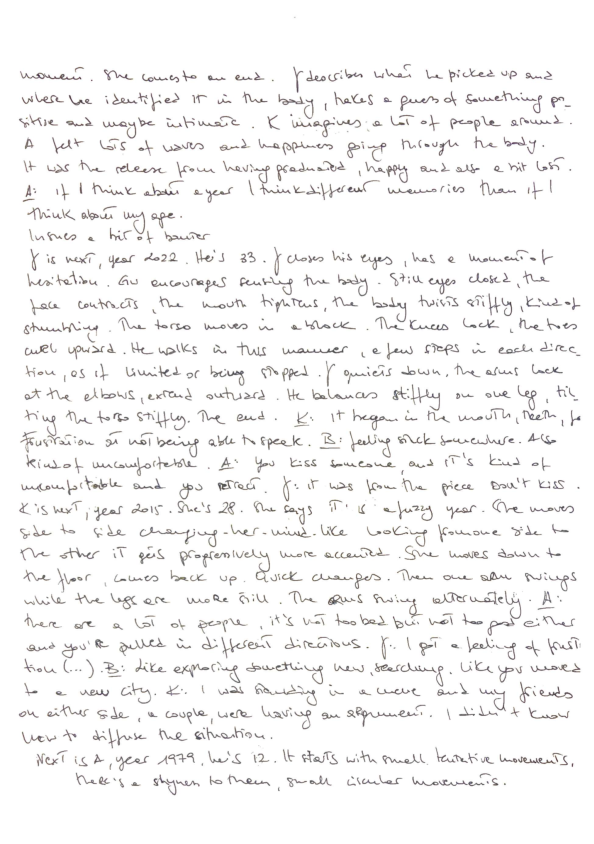 moment. She comes to an end. Y describes what he picked up and
where he identified it in the body, makes a guess of something po-
sitive and maybe intimate. K imagines a lot of people around.
A felt lots of waves and happiness going through the body.
It was the release from having graduated, happy and also a bit lost.
A: if I think about a year I think different memories than if I
think about my age.
Insues a bit of banter
Y is next, year 2022. He's 33. Y closes his eyes, has a moment of
hesitation. Giu encourages sensing the body. Still eyes closed, the
face contracts, the mouth tightens, the body twists stiffly, kind of
stumbling. The torso moves in a block. The knees lock, the toes
curl upward. He walks in this manner, a few steps in each direc-
tion, as if limited or being stopped. Y quiets down, the arms lock
at the elbows, extend outward. He balances stiffly on one leg, til-
ting the torso stiffly. The end. K: it began in the mouth, teeth,
frustration or not being able to speak. B: feeling stuck somewhere. Also
kind of uncomfortable. A: you kiss someone, and it's kind of
uncomfortable and you retract. Y: it was from the piece Don't Kiss.
K is next, year 2015. She's 28. She says it is a fuzzy year. She moves
side to side changing-her-mind-like looking from one side to
the other it gets progressively more accented. She moves down to
the floor, comes back up. Quick changes. Then one arm swings
while the legs are more still. The arms swing alternately. A:
there are a lot of people, it's not too bad but not too good either
and you're pulled in different directions. Y: I got a feeling of frust
tion (...). B: Like exploring something new, searching. Like you moved
to a new city. K: I was standing in a and my friends
on either side, a couple, were having an argument. I didn't know
how to diffuse the situation.
Next is A, year 1979, he's 12. It starts with small tentative movements,
there's a shyness to them, small circular movements.